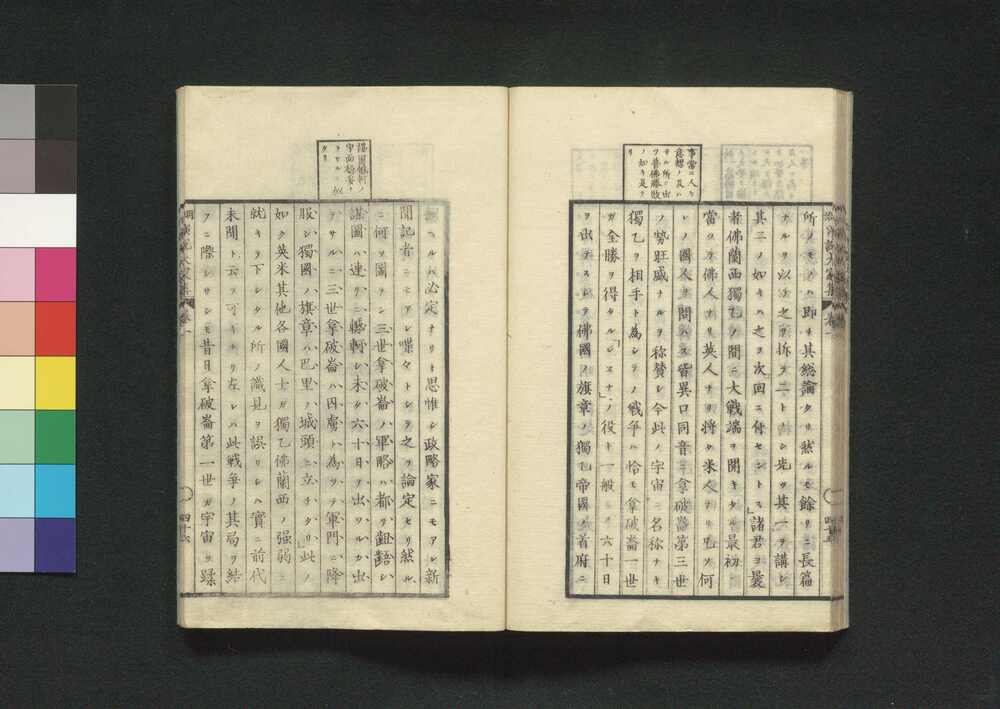 事常ニ人ノ
意想ノ及ハ
サル所ニ出
ツ普佛勝敗
ノ如キ是ナ
リ
所ノモノハ即チ其總論タリ然ルモ餘リニ長篇
ナルヲ以テ之ヲ拆テ二トシ先ヅ其一ヲ講シ
其二ノ如キハ之ヲ次回ニ付セントス」諸君ヨ曩
者佛蘭西獨乙ノ間ニ大戰端ヲ開キタル最初ニ
當リテ佛人ナリ英人ナリ將タ米人ナリ宅ノ何
レノ國人ヲ問ハス皆異口同音ニ拿破崙第三世
ノ勢旺盛ナルヲ称賛シ今此ノ宇宙ニ名称ナキ
獨乙ヲ相手ト為シテノ戰爭ハ恰モ拿破崙一世
ガ全勝ヲ得タル「シスナ」ノ役ト一般ニテ六十日
ヲ出テスシテ佛國ノ旗章ハ獨乙帝國ノ首府ニ
卷一
四十五
陽
ノ
中
ラセルニ似
タリ
ヘルハ必定ナリト思惟シ政略家ニモアレ新
聞記者ニモアレ喋々トシテ之ヲ論定セリ然ル
ニ何ヲ圖ラン三世拿破崙ノ軍略ハ都テ齟齬シ
謀圖ハ連リニ轗軻シ未タ六十日ヲ出ツルカ出
テサルニ三世拿破崙ハ囚虜ト為リテ軍門ニ降
服シ獨國ノ旗章ハ巴里ノ城頭ニ立チタリ」此ノ
如ク英米其他各國人士ガ獨乙佛蘭西ノ强弱ニ
就キテ下シタル所ノ識見ヲ誤リシハ實ニ前代
未聞ト云フ可キナリ左レハ此戰爭ノ其局ヲ結
フニ際シサシモ昔日拿破崙第一世ガ宇宙ヲ蹂
卷一
四十六